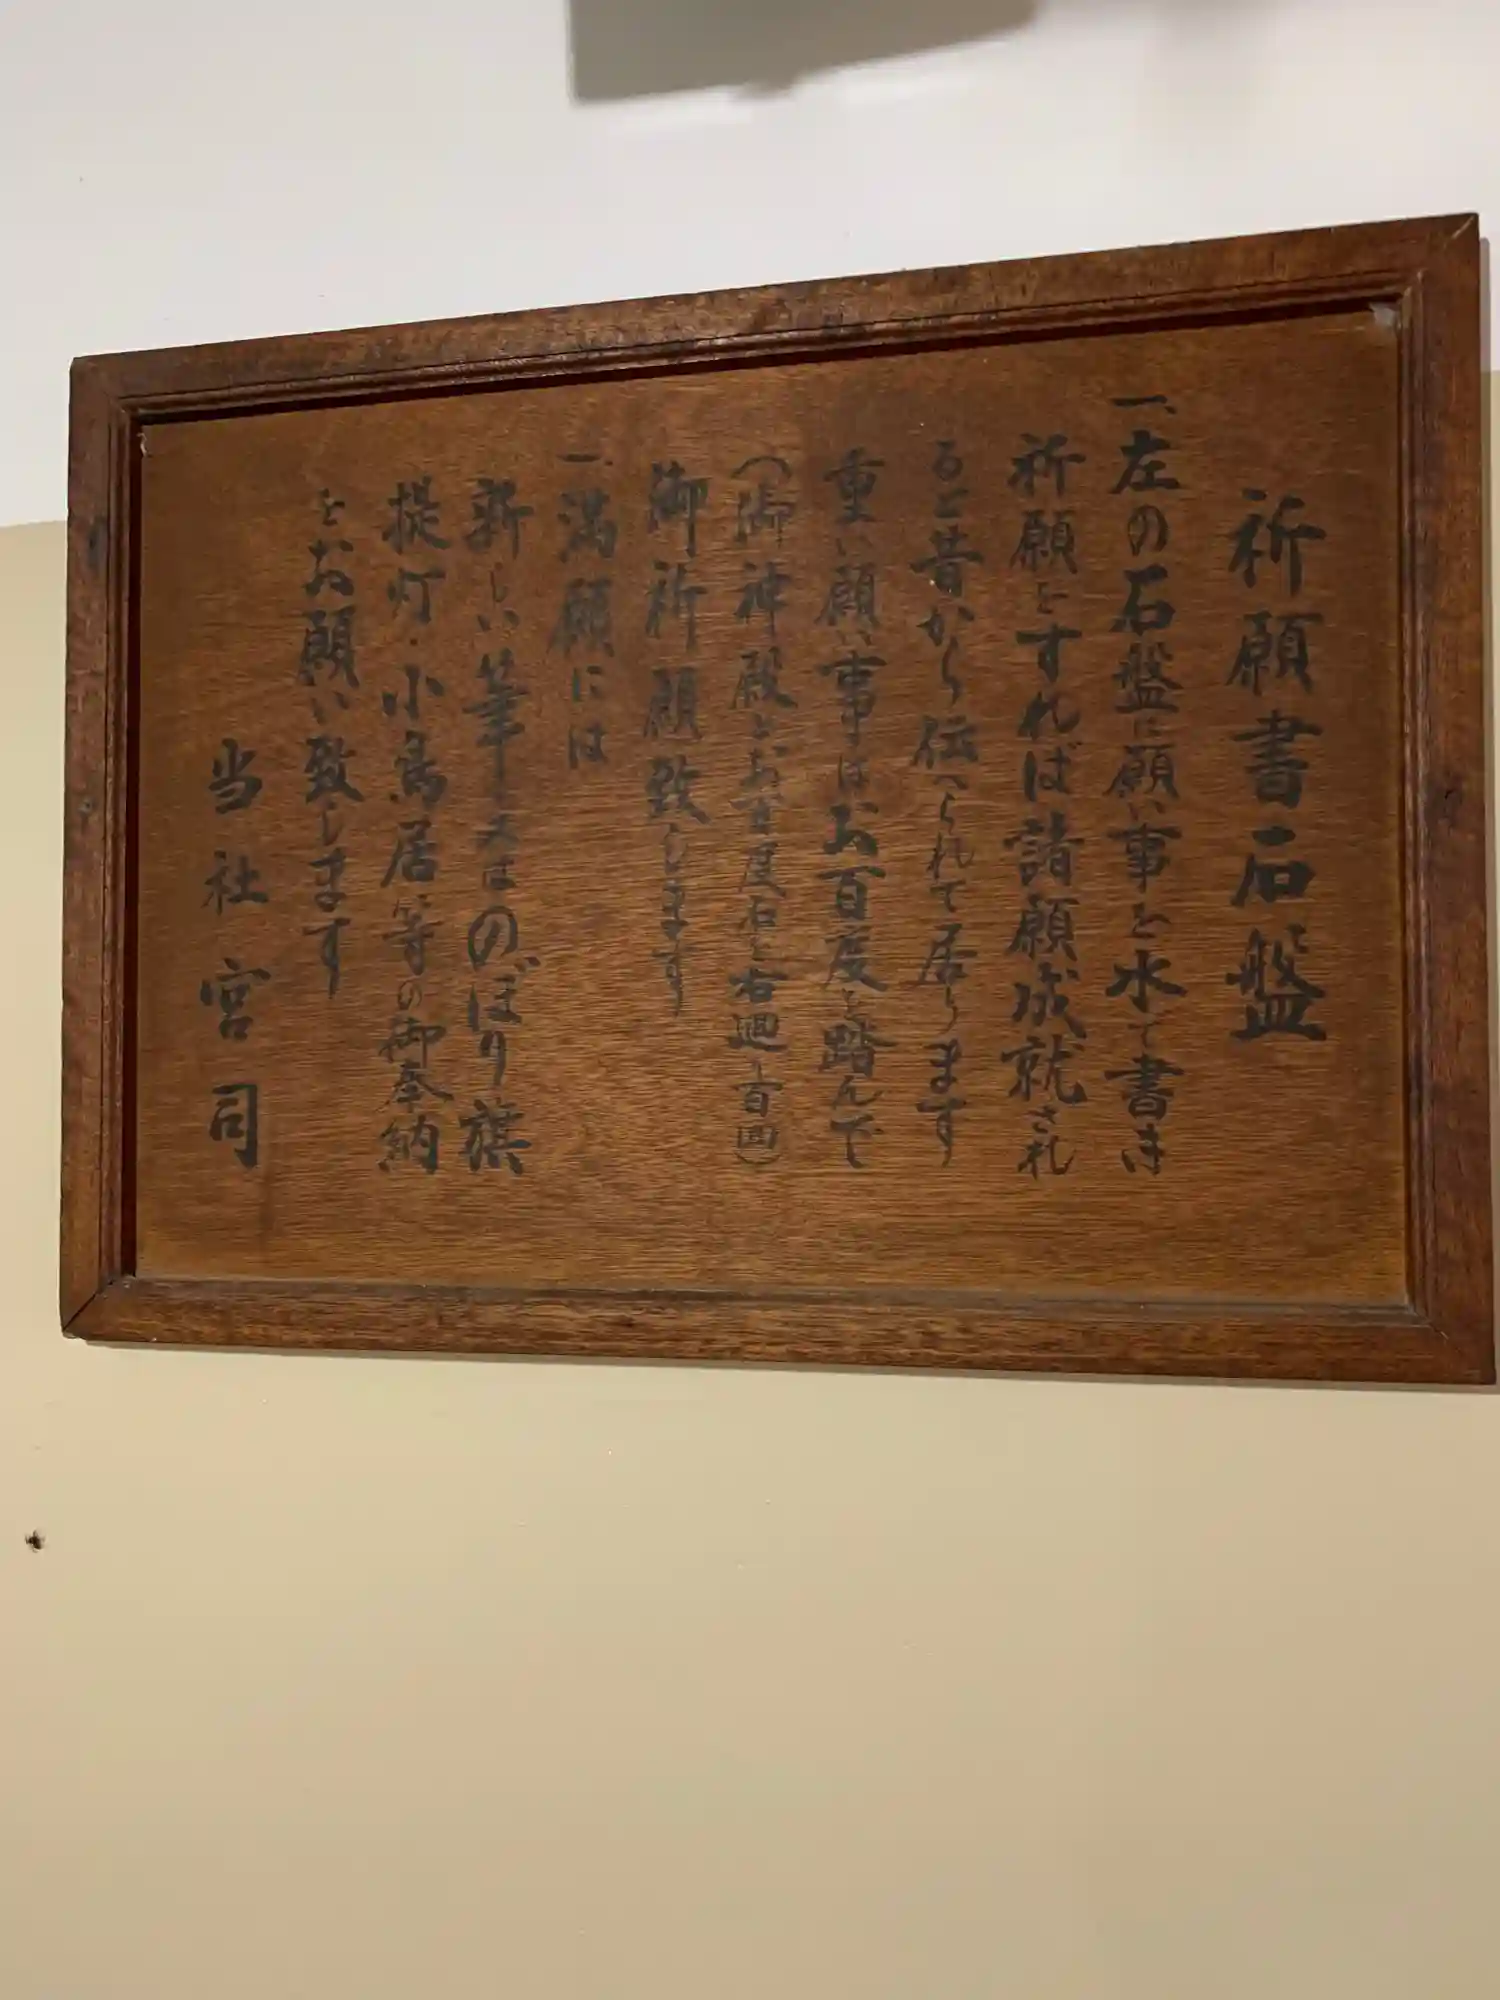 祈願書石盤
一、左の石盤に願い事を水で書き
祈願をすれば諸願成就され
ると昔から伝へられて居ります
重い願い事はお百度を踏んで
(御神殿とお百度石を右廻り百回)
御祈願致します
一、満願には
新しい筆又はのぼり旗
提灯・小鳥居等の御奉納
をお願い致します
当社宮司